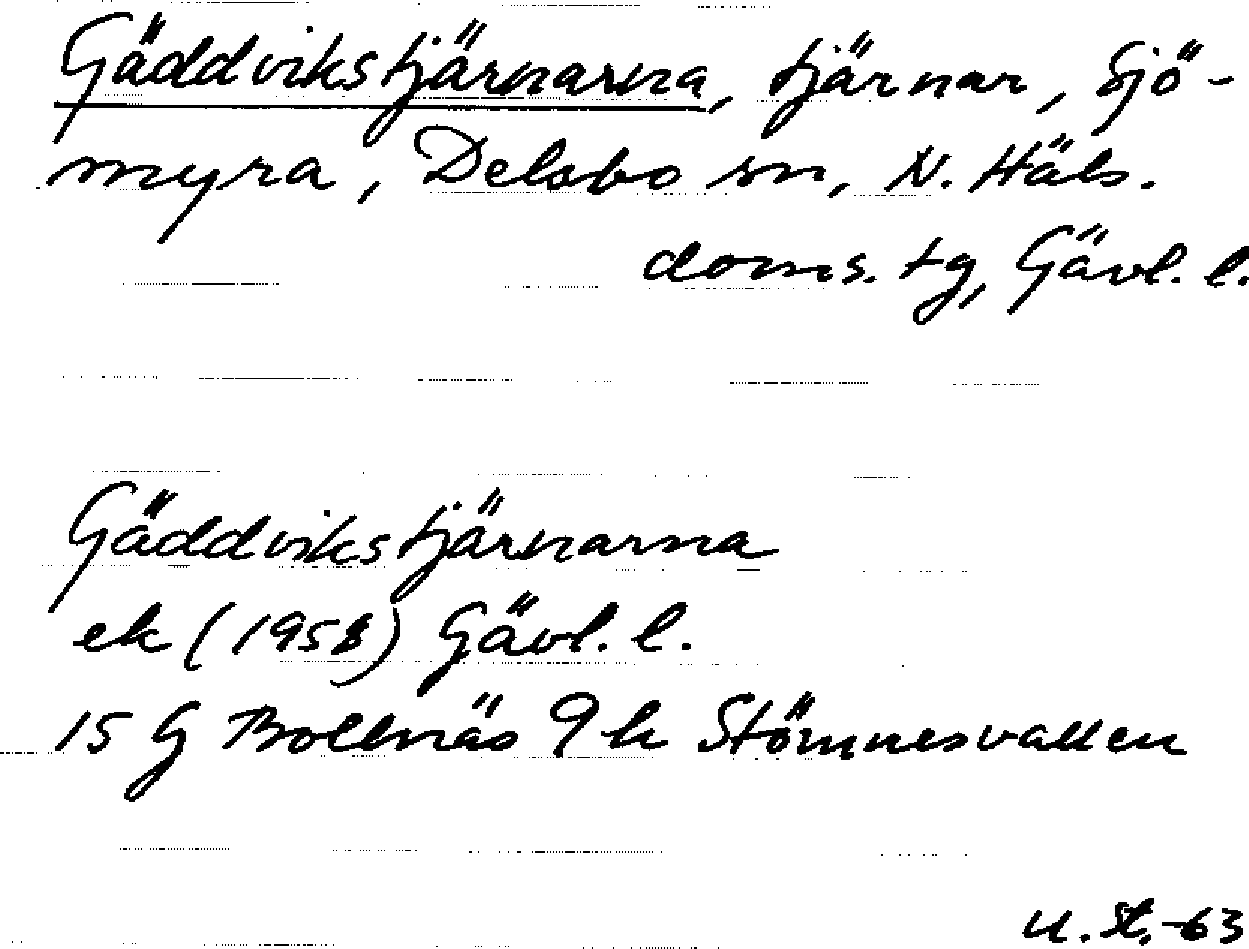 Gäddvikstjärnarna, tjärnar, Sjö-
myra, Delsbo sn, N. Häls.
doms. tg, Gävl. l.
Gäddvikstjärnarna
ek (1958) Gävl. l.
15 G Bollnäs 9 h Stömnesvallen
U. St. -63